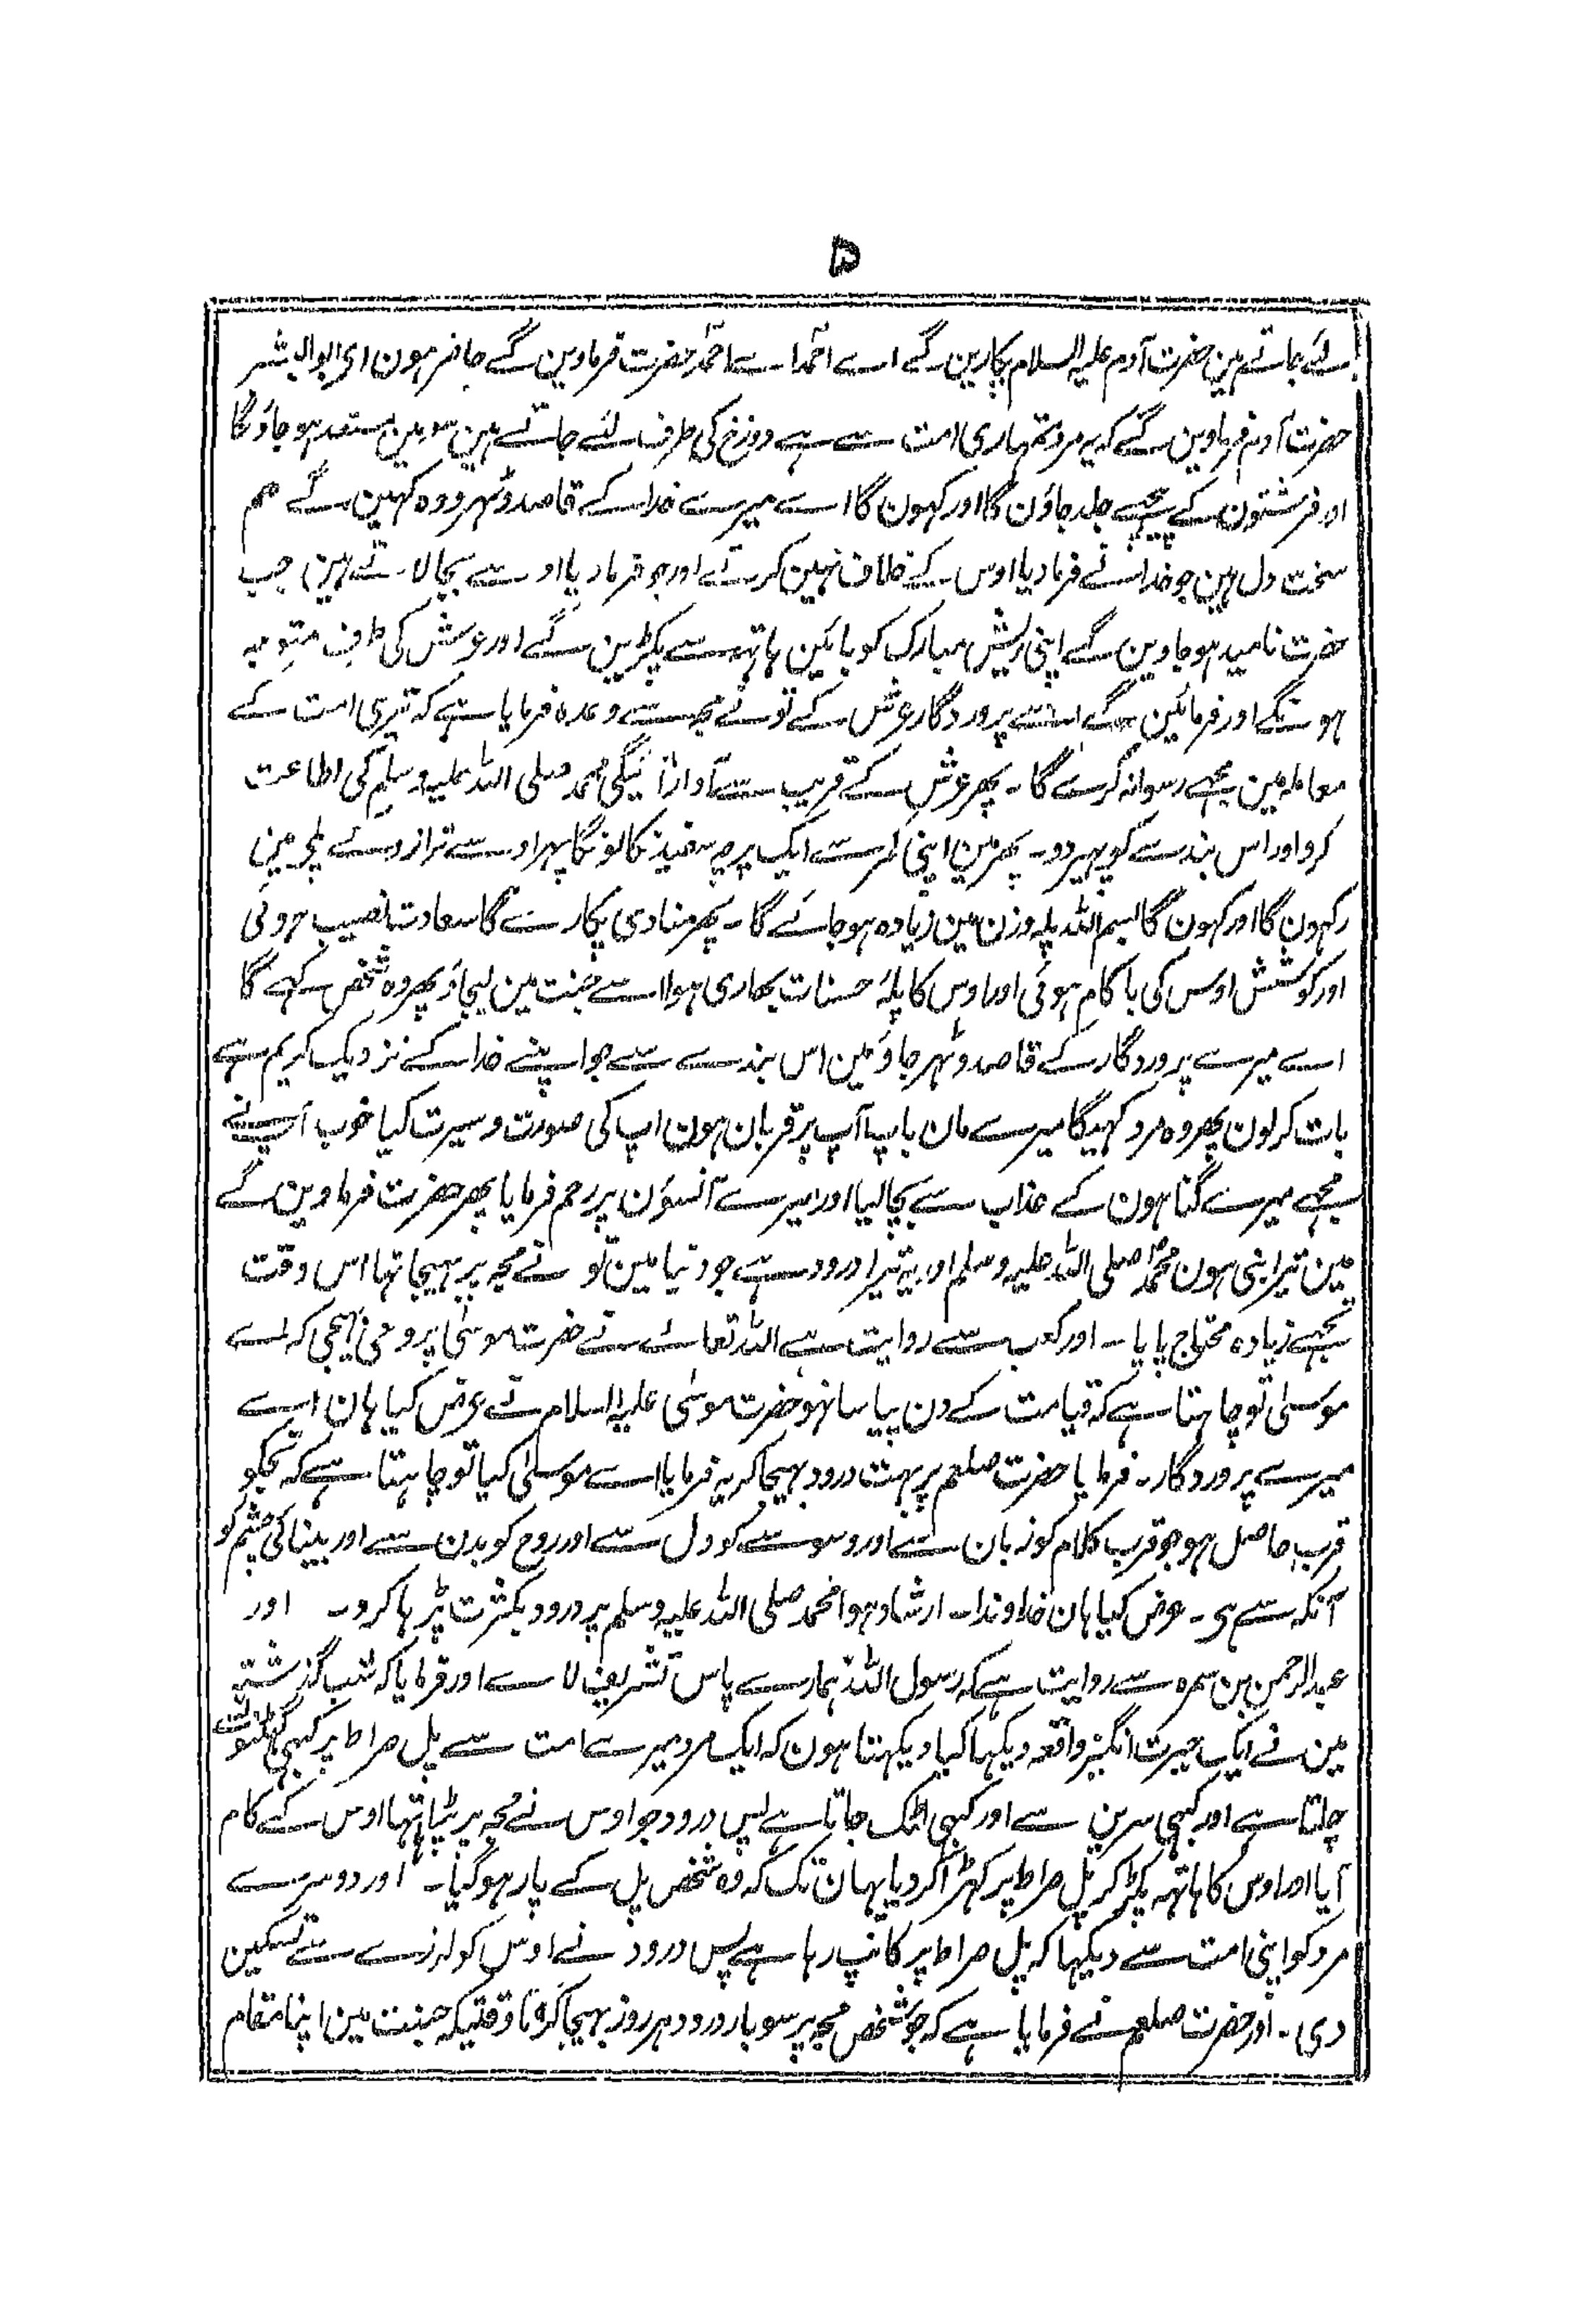 ۵
لئے جاتے ہین حضرت آدم علیہ السلام پکارین گے اے احمد اے احمد حضرت فرماوین گے حاضر ہون ای ابوالبشر
حضرت آدم فرماوین گے کہ یہ مرد تمہاری امت سے ہے دوزخ کی طرف لئے جاتے ہین سو مین مستعد ہو جاؤنگا
اور فرشتون کے پیچہے جلد جاؤن گا اور کہون گا اے میرے خدا کے قاصدو ٹہرو وہ کہین گے ہم
سخت دل ہین جو خدا نے فرما دیا اوس کے خلاف نہین کرتے اور جو فرما دیا اوسے بجا لاتے ہین جب
حضرت نامید ہو جاوین گے اپنی ریش مبارک کو بائین ہاتہہ سے پکڑین گے اور عرش کی طرف متوجہ
ہونگے اور فرمائین گے اے پروردگار عرش کے تو نے مجہسے وعدہ فرمایا ہے کہ تیری امت کے
معاملہ مین مجہے رسوا نہ کرے گا ۔ پھر عرش کے قریب سے آواز آئیگی محمد صلی اللہ علیہ وسلم کی اطاعت
کرو اور اس بندے کو پہیر دو ۔ پھر مین اپنی کمر سے ایک پرچہ سفید نکالونگا پہر اوسے ترازو کے پلے مین
رکہون گا اور کہون گا بسم اللہ پلہ وزن مین زیادہ ہو جائے گا ۔ پھر منادی پکارے گا سعادت نصیب ہوئی
اور کوشش اوس کی با کام ہوئی اور اوس کا پلہ حسنات بھاری ہوا اسے جنت مین لیجاؤ پھر وہ شخص کہے گا
اے میرے پروردگار کے قاصدو ٹہر جاؤ مین اس بندے سے جو اپنے خدا کے نزدیک کریم ہے
بات کر لون پھر وہ مرد کہیگا میرے مان باپ آپ پر قربان ہون اپ کی صورت و سیرت کیا خوب آپنے
مجہے میرے گناہون کے عذاب سے بچا لیا اور میرے آنسوؤن پر رحم فرمایا پھر حضرت فرماوین گے
مین تیرا نبی ہون محمد صلی اللہ علیہ وسلم اور یہ تیرا درود ہے جو دنیا مین تو نے مجہ پر بہیجا تہا اس وقت
تجہے زیادہ محتاج پایا ۔ اور کعب سے روایت ہے اللہ تعالے نے حضرت موسیٰ پر وحی بہیجی کہ اے
موسیٰ تو چاہتا ہے کہ قیامت کے دن پیاسا نہو حضرت موسیٰ علیہ السلام نے عرض کیا ہان اے
میرے پروردگار ۔ فرمایا حضرت صلعم پر بہت درود بہیجا کر یہ فرمایا اے موسیٰ کیا تو چاہتا ہے کہ تجکو
قرب حاصل ہو جو قرب کلام کو زبان سے اور وسوسے کو دل سے اور روح کو بدن سے اور بینائی چشم کو
آنکہ سے ہی ۔ عرض کیا ہان خداوندا ۔ ارشاد ہوا محمد صلی اللہ علیہ وسلم پر درود بکثرت پڑہا کرو ۔ اور
عبد الرحمن بن سمرہ سے روایت ہے کہ رسول اللہ ہمارے پاس تشریف لاے اور فرمایا کہ شب گذشتہ
مین نے ایک حیرت انگیز واقعہ دیکہا کیا دیکہتا ہون کہ ایک مرد میرے امت سے پل صراط پر کبہی
چلتا ہے اور کبہی سرین سے اور کبہی اٹک جاتا ہے پس درود جو اوس نے مجہ پر پڑہا تہا اوس کے کام
آیا اور اوس کا ہاتہہ پکڑ کر پل صراط پر کہڑا کر دیا یہان تک کہ وہ شخص پل کے پار ہو گیا ۔ اور دوسرے
مرد کو اپنی امت سے دیکہا کہ پل صراط پر کانپ رہا ہے پس درود نے اوس کو لرزے سے تسکین
دی ۔ اور حضرت صلعم نے فرمایا ہے کہ جو شخص مجہ پر سو بار درود ہر روز بہیجا کرے تا وقتیکہ جنت مین اپنا مقام